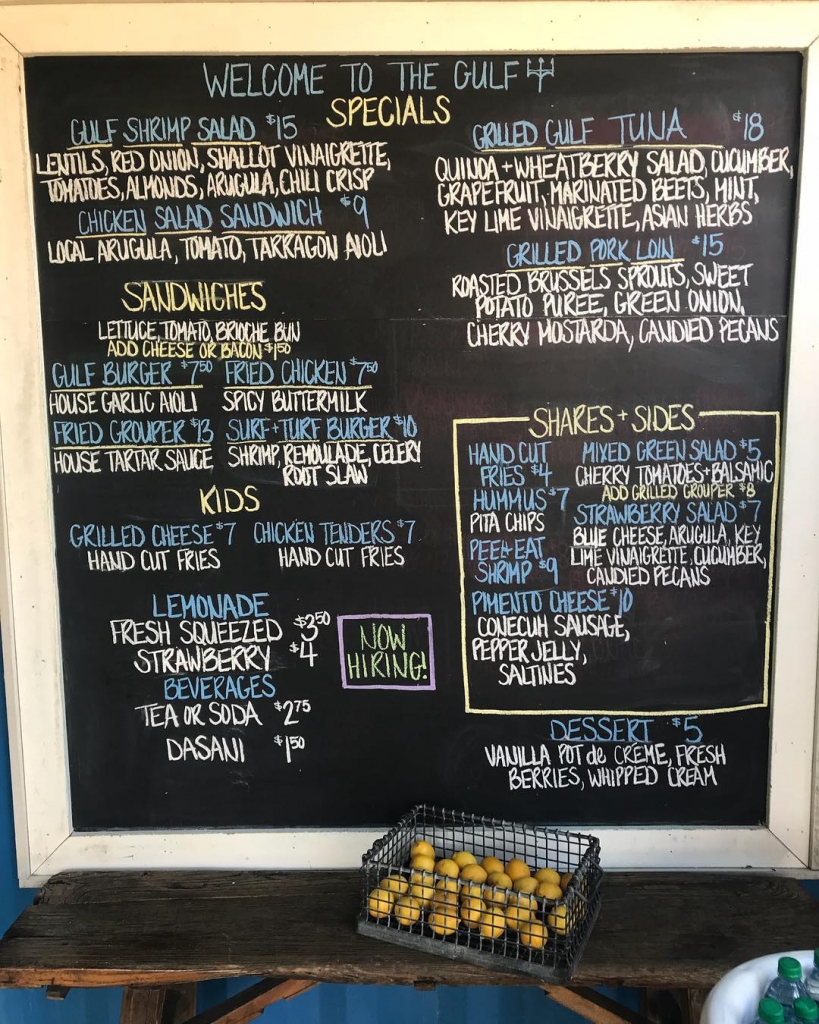 WELCOME TO THE GULF
SPECIALS
GULF SHRIMP SALAD $15
LENTILS, RED ONION, SHALLOT VINAIGRETTE,
TOMATOES, ALMONDS, ARUGULA, CHILI CRISP
CHICKEN SALAD SANDWICH $9
LOCAL ARUGULA, TOMATO, TARRAGON AIOLI
GRILLED GULF TUNA $18
QUINOA + WHEATBERRY SALAD, CUCUMBER,
GRAPEFRUIT, MARINATED BEETS, MINT,
KEY LIME VINAIGRETTE, ASIAN HERBS
GRILLED PORK LOIN $15
ROASTED BRUSSELS SPROUTS, SWEET
POTATO PUREE, GREEN ONION,
CHERRY MOSTARDA, CANDIED PECANS
SANDWICHES
LETTUCE, TOMATO, BRIOCHE BUN
ADD CHEESE OR BACON $1.50
GULF BURGER $7.50
HOUSE GARLIC AIOLI
FRIED CHICKEN $7.50
SPICY BUTTERMILK
FRIED GROUPER $13
HOUSE TARTAR SAUCE
SURF + TURF BURGER $10
SHRIMP, REMOULADE, CELERY
ROOT SLAW
KIDS
GRILLED CHEESE $7
HAND CUT FRIES
CHICKEN TENDERS $7
HAND CUT FRIES
LEMONADE
FRESH SQUEEZED $3.50
STRAWBERRY $4
BEVERAGES
TEA OR SODA $2.75
DASANI $1.50
NOW
HIRING!
SHARES + SIDES
HAND CUT
FRIES $4
HUMMUS $7
PITA CHIPS
PEEL + EAT
SHRIMP $9
PIMENTO CHEESE $10
CONECUH SAUSAGE,
PEPPER JELLY,
SALTINES
MIXED GREEN SALAD $5
CHERRY TOMATOES + BALSAMIC
ADD GRILLED GROUPER $8
STRAWBERRY SALAD $7
BLUE CHEESE, ARUGULA, KEY
LIME VINAIGRETTE, CUCUMBER,
CANDIED PECANS
DESSERT $5
VANILLA POT de CREME, FRESH
BERRIES, WHIPPED CREAM